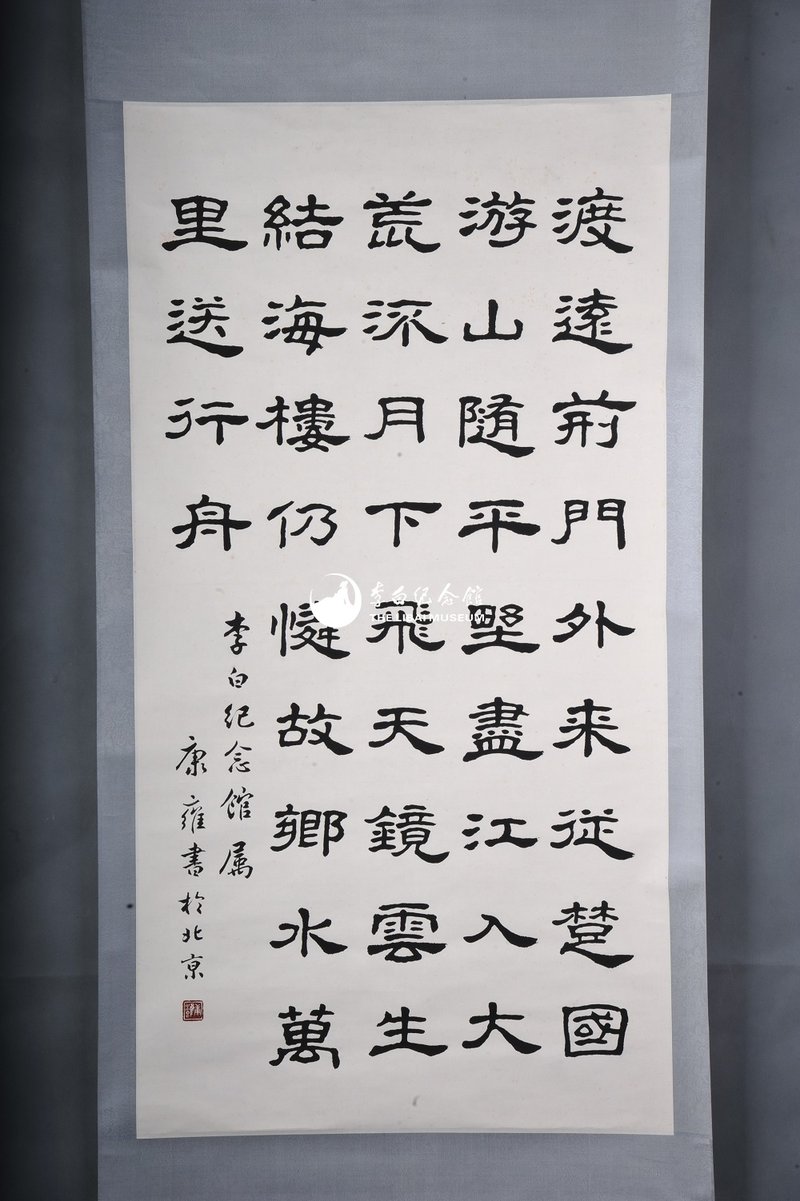 渡遠荊門外来從楚國
游山隨平埜盡江入大
荒流月下飛天鏡雲生
結海樓仍憐故鄉水萬
里送行舟
李白纪念館属
康雍書於北京
李白纪念馆
THE LIBAI MUSEUM